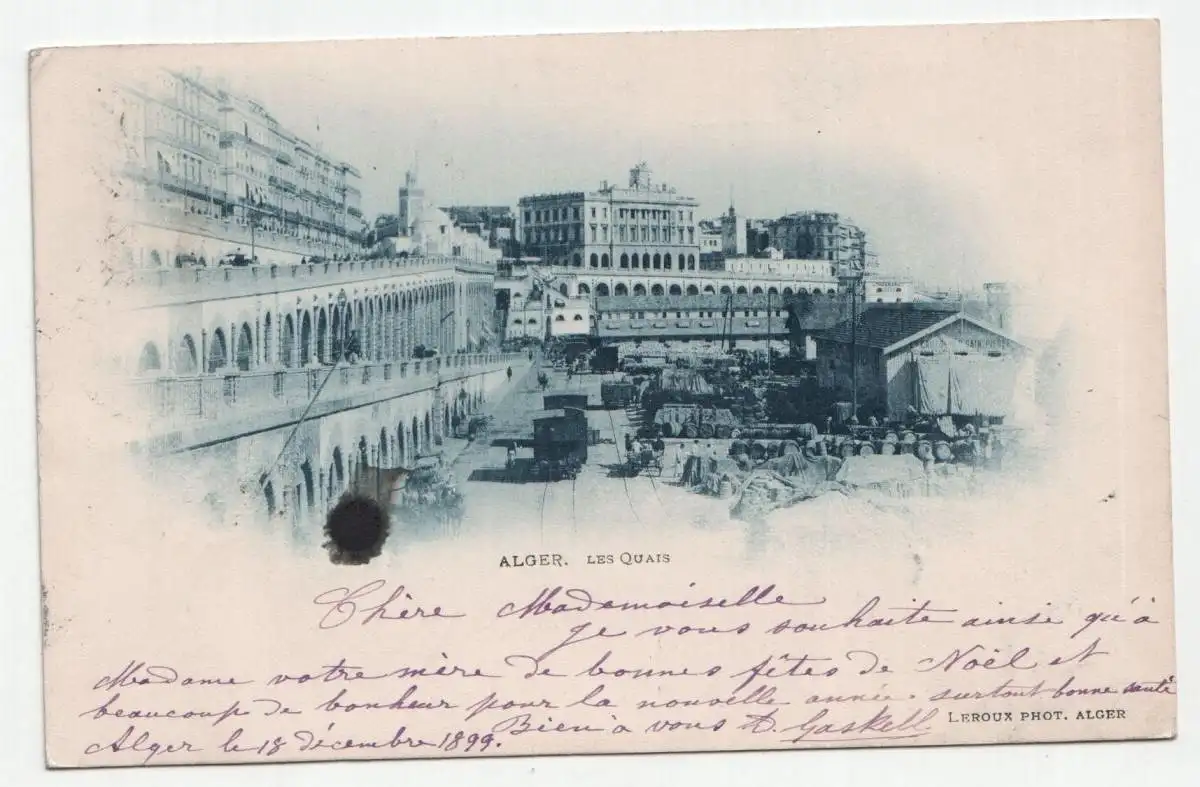 ALGER. LES QUAIS
Chère Mademoiselle
Je vous souhaite ainsi qu'à
Madame votre mère de bonnes fêtes de Noël et
beaucoup de bonheur pour la nouvelle année. surtout bonne santé
Bien à vous D. Gaskell
LEROUX PHOT. ALGER
Alger le 18 décembre 1899.